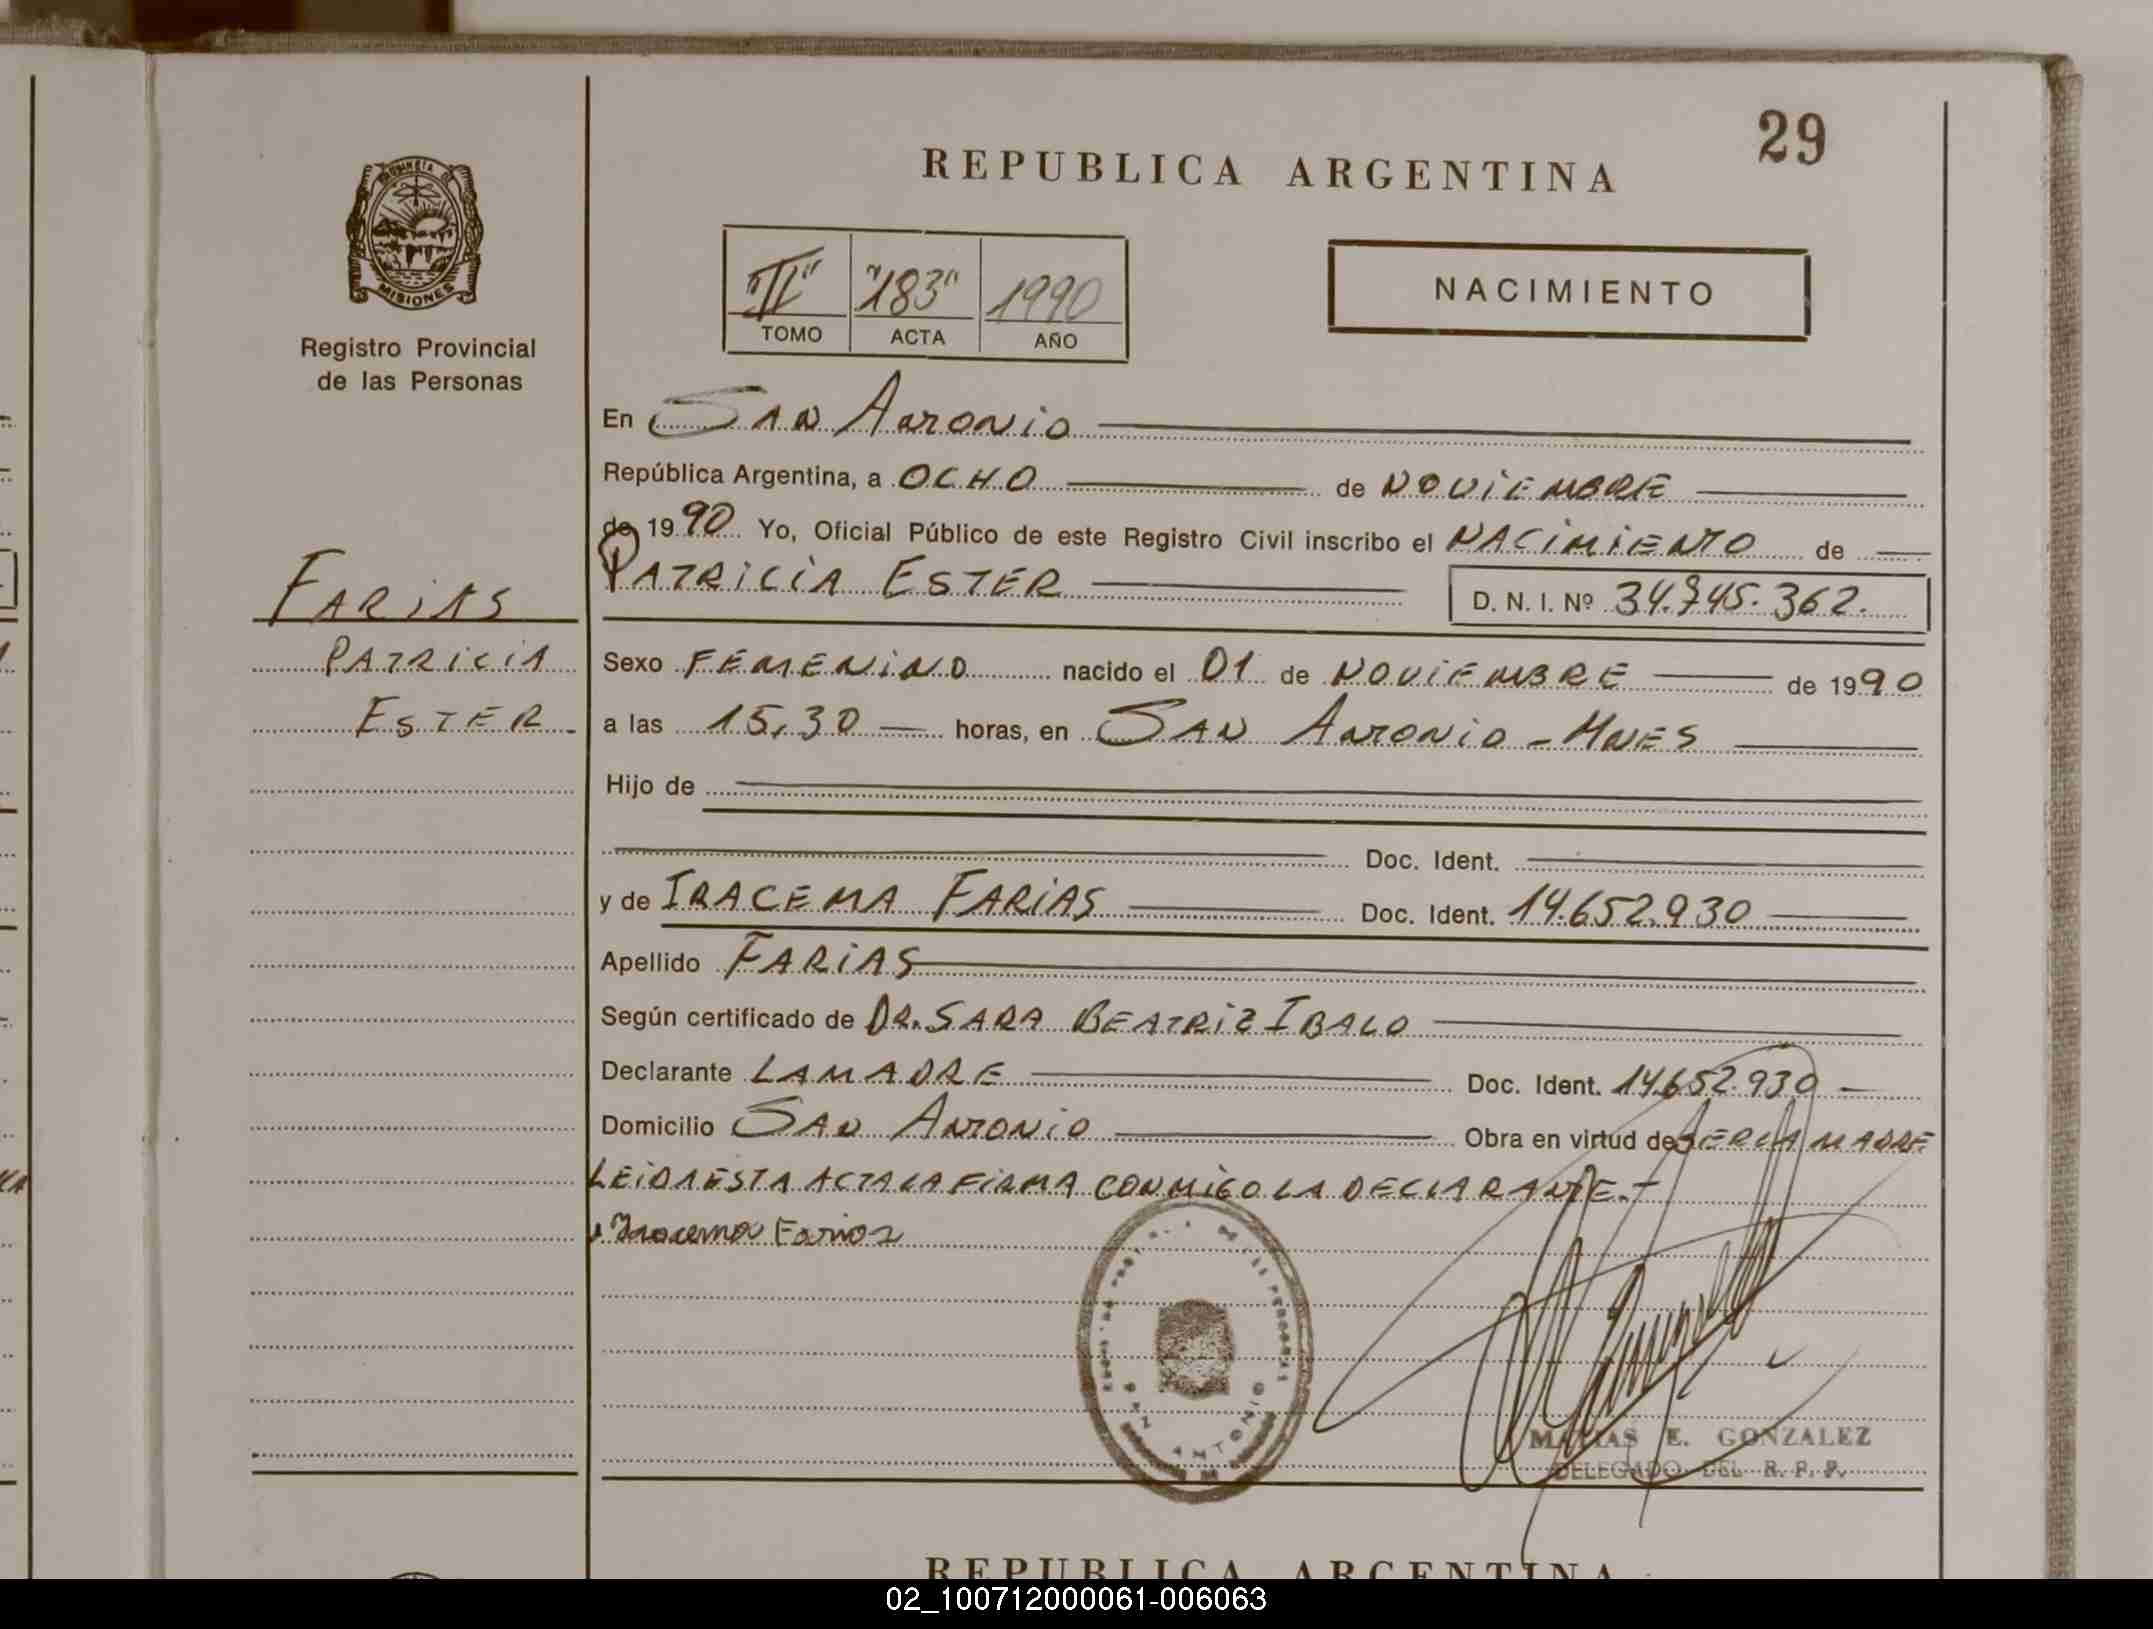 29
REPUBLICA ARGENTINA
PROVINCIA DE
MISIONES
Registro Provincial
de las Personas
"II" "183" 1990
TOMO ACTA AÑO
NACIMIENTO
En San Antonio
República Argentina, a OCHO de NOVIEMBRE
de 1990 Yo, Oficial Público de este Registro Civil inscribo el NACIMIENTO de
PATRICIA ESTER D. N. I. Nº 34.745.362.
FARIAS
PATRICIA
ESTER
Sexo FEMENINO nacido el 01 de NOVIEMBRE de 1990
a las 15,30 horas, en SAN ANTONIO - MNES
Hijo de
Doc. Ident.
y de IRACEMA FARIAS Doc. Ident. 14.652.930
Apellido FARIAS
Según certificado de DR. SARA BEATRIZ IBALO
Declarante LA MADRE Doc. Ident. 14.652.930
Domicilio SAN ANTONIO Obra en virtud de SER LA MADRE
LEIDA ESTA ACTA LA FIRMA CONMIGO LA DECLARANTE.-
Iracema Farias
SAN ANTONIO
MATIAS E. GONZALEZ
DELEGADO DEL R. P. P.
REPUBLICA ARGENTINA
02_100712000061-006063